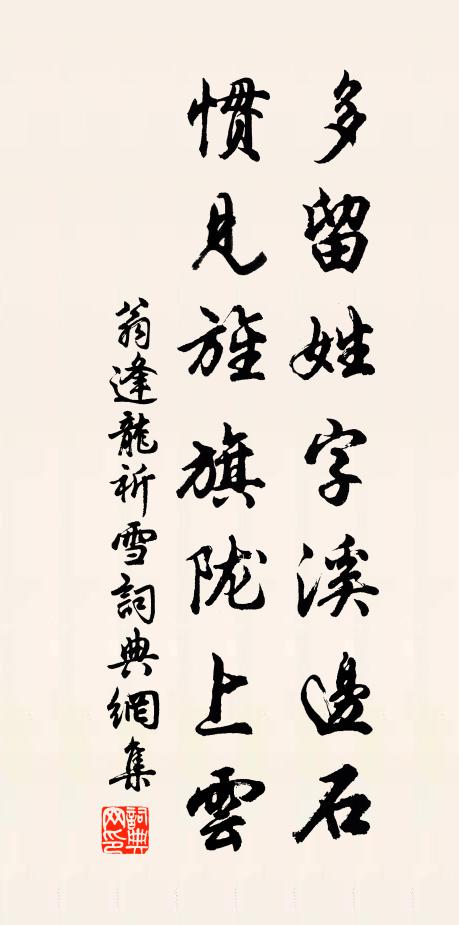 多留姓字溪邊石
慣見旌旗陇上雲
翁逢龍祈雪詞典網集
詞典网印